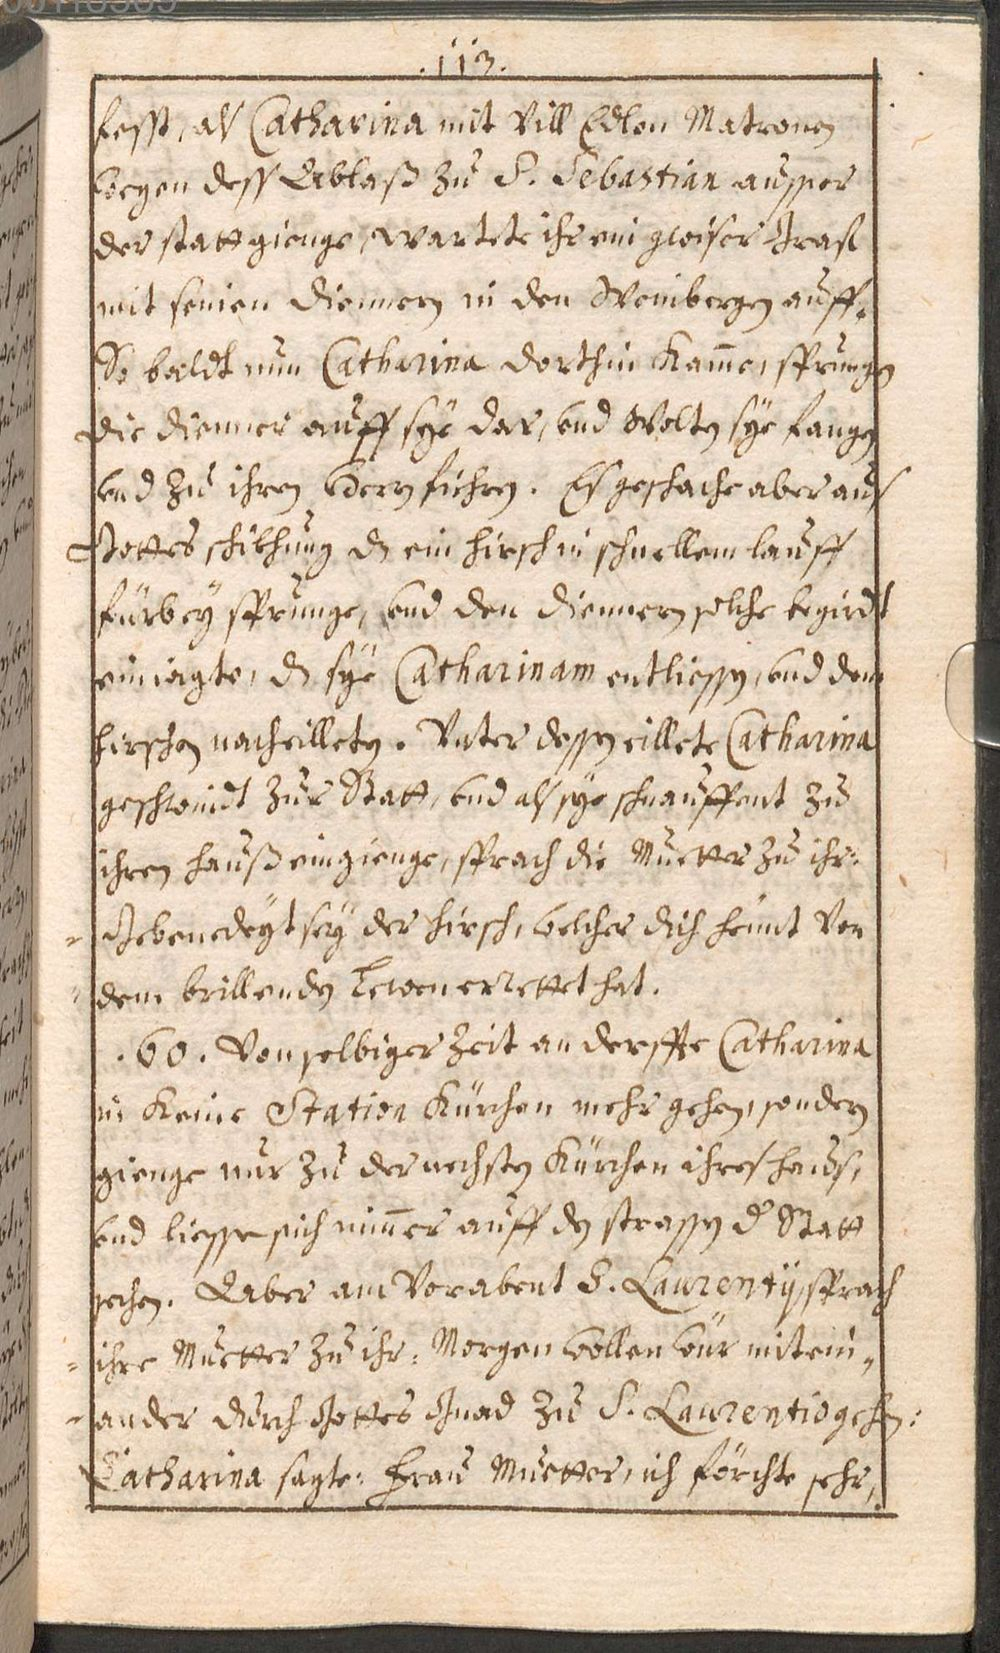 .113.
fesst, als Catharina mit vill Edlen Matronen
wegen dess Ablaß zu S. Sebastian ausser
der statt gienge, wartete ihr ein gwiser Graf
mit seinen Diennern in den Weinbergen auff.
So baldt nun Catharina dorthin kam̄e, sprungen
die Dienner auff sye dar, und wolten sye fangen
und zu ihren Herrn führen. Es geschache aber aus
Gottes schikhung dz ein hirsch in schnellem lauff
fürbey sprunge, und den Diennern solche begirdt
einiagte, dz sye Catharinam entliessen, und dem
hirschen nacheilleten. Unter dessen eillete Catharina
geschwindt zur Statt, und als sye schnauffent zu
ihren hauß eingienge, sprach die Muetter zu ihr:
Gebenedeyt sey der hirsch, welcher dich heünt von
dem brillenden Lewen errettet hat.
.60. Von selbiger Zeit an derffte Catharina
in keine Station Kürchen mehr gehen, sondern
gienge nur zu der nechsten Kürchen ihres haus,
und liesse sich nim̄er auff den strassen dr Statt
sechen. Aber am Vorabent S. Laurentij, sprach
ihre Muetter zu ihr: Morgen wollen wür mitein„
ander durch Gottes Gnad zu S. Laurentio gehen:
Catharina sagte: Frau Muetter, ich förchte sehr,